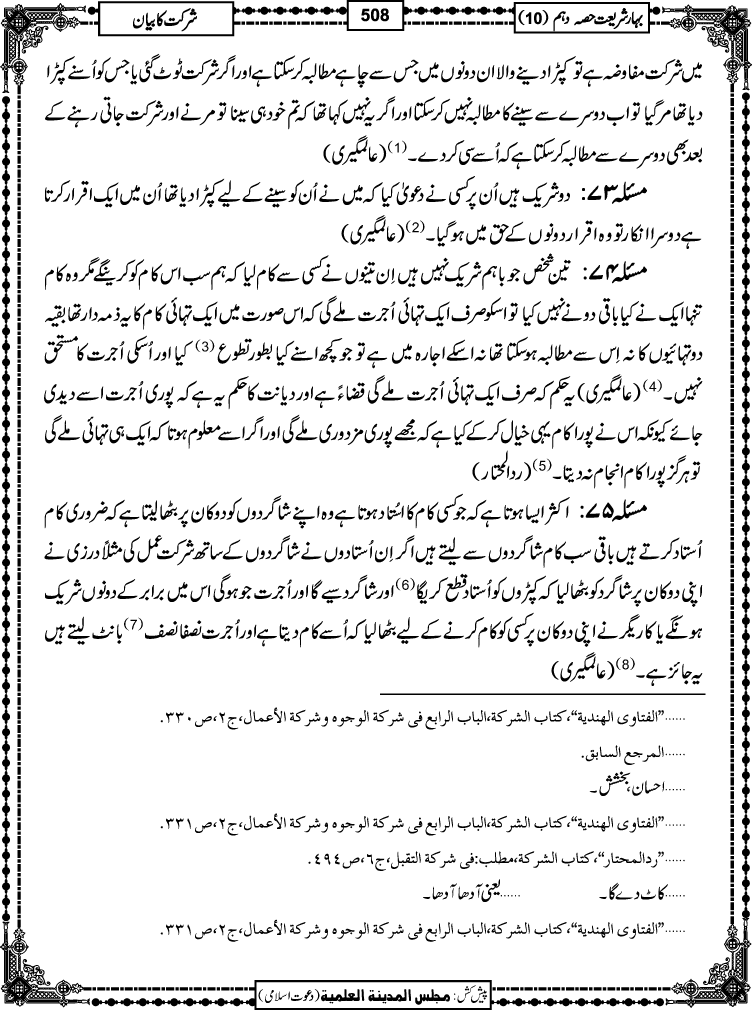 بہارِ شریعت حصہ دہم (10)
508
شرکت کا بیان
میں شرکت مفاوضہ ہے تو کپڑا دینے والا ان دونوں میں جس سے چاہے مطالبہ کرسکتا ہے اور اگر شرکت ٹوٹ گئی یا جس کو اُسنے کپڑا
دیا تھا مر گیا تو اب دوسرے سے سینے کا مطالبہ نہیں کرسکتا اور اگر یہ نہیں کہا تھا کہ تم خود ہی سینا تو مرنے اور شرکت جاتی رہنے کے
بعد بھی دوسرے سے مطالبہ کرسکتا ہے کہ اُسے سی کر دے۔(1) (عالمگیری)
مسئلہ ۷۳: دو شریک ہیں اُن پر کسی نے دعویٰ کیا کہ میں نے اُن کو سینے کے لیے کپڑا دیا تھا اُن میں ایک اقرار کرتا
ہے دوسرا انکار تو وہ اقرار دونوں کے حق میں ہوگیا۔(2) (عالمگیری)
مسئلہ ۷۴: تین شخص جو باہم شریک نہیں ہیں اِن تینوں نے کسی سے کام لیا کہ ہم سب اس کام کو کرینگے مگر وہ کام
تنہا ایک نے کیا باقی دو نے نہیں کیا تو اسکو صرف ایک تہائی اُجرت ملے گی کہ اس صورت میں ایک تہائی کام کا یہ ذمہ دار تھا بقیہ
دو تہائیوں کا نہ اِس سے مطالبہ ہوسکتا تھا نہ اسکے اجارہ میں ہے تو جو کچھ اسنے کیا بطور تطوع (3) کیا اور اُسکی اُجرت کا مستحق
نہیں۔(4) (عالمگیری) یہ حکم کہ صرف ایک تہائی اُجرت ملے گی قضاءً ہے اور دیانت کا حکم یہ ہے کہ پوری اُجرت اسے دیدی
جائے کیونکہ اس نے پورا کام یہی خیال کرکے کیا ہے کہ مجھے پوری مزدوری ملے گی اور اگر اسے معلوم ہوتا کہ ایک ہی تہائی ملے گی
تو ہرگز پورا کام انجام نہ دیتا۔(5) (ردالمحتار)
مسئلہ ۷۵: اکثر ایسا ہوتا ہے کہ جو کسی کام کا اُستاد ہوتا ہے وہ اپنے شاگردوں کو دوکان پر بٹھا لیتا ہے کہ ضروری کام
اُستاد کرتے ہیں باقی سب کام شاگردوں سے لیتے ہیں اگر اِن اُستادوں نے شاگردوں کے ساتھ شرکت عمل کی مثلاً درزی نے
اپنی دوکان پر شاگرد کو بٹھا لیا کہ کپڑوں کو اُستاد قطع کریگا (6) اور شاگرد سیے گا اور اُجرت جو ہوگی اس میں برابر کے دونوں شریک
ہونگے یا کاریگر نے اپنی دوکان پر کسی کو کام کرنے کے لیے بٹھا لیا کہ اُسے کام دیتا ہے اور اُجرت نصفا نصف (7) بانٹ لیتے ہیں
یہ جائز ہے۔(8) (عالمگیری)
......”الفتاوی الھندیة“، کتاب الشرکة، الباب الرابع فی شرکة الوجوہ وشرکة الأعمال، ج۲، ص۳۳۰.
......المرجع السابق.
......احسان، بخشش۔
......”الفتاوی الھندیة“، کتاب الشرکة، الباب الرابع فی شرکة الوجوہ وشرکة الأعمال، ج۲، ص۳۳۱.
......”ردالمحتار“، کتاب الشرکة، مطلب: فی شرکة التقبل، ج۶، ص۴۹۴.
......کاٹ دے گا۔ ......یعنی آدھا آدھا۔
......”الفتاوی الھندیة“، کتاب الشرکة، الباب الرابع فی شرکة الوجوہ وشرکة الأعمال، ج۲، ص۳۳۱.
پیش کش: مجلس المدینة العلمیة (دعوت اسلامی)